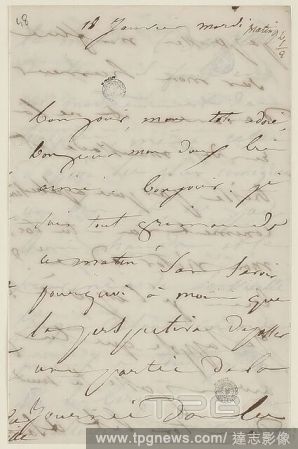 48
18 Janvier mardi matin
Bonjour, mon toto adoré,
bonjour mon doux bien
aimé bonjour, je
suis tout grimaude
ce matin sans savoir
pourquoi à moins que
la perspective de passer
une partie de la
journée dans les
TPG
www.tpgnews.com / 達志影像